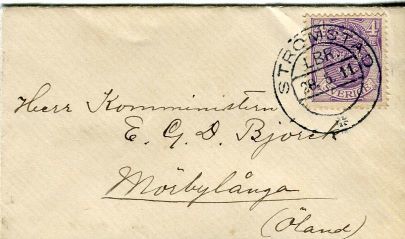 4
STRÖMSTAD
1.BR.
SVERIGE
Herr Komministern
E. G. D. Björck
Mörbylånga
(Öland)